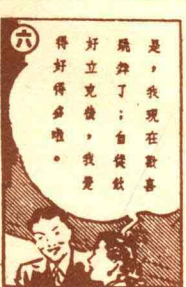 六
是，我現在歡喜
跳舞了；自從飲
好立克後，我覺
得好得多啦。